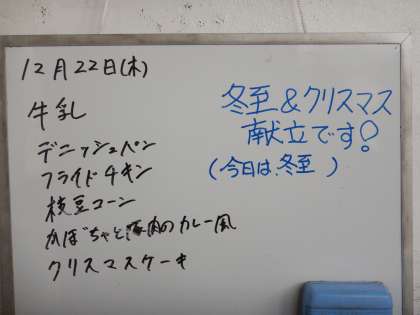 12月22日(木)
牛乳
デニッシュパン
フライドチキン
枝豆コーン
かぼちゃと豚肉のカレー風
クリスマスケーキ
冬至&クリスマス
献立です!
(今日は、冬至 )